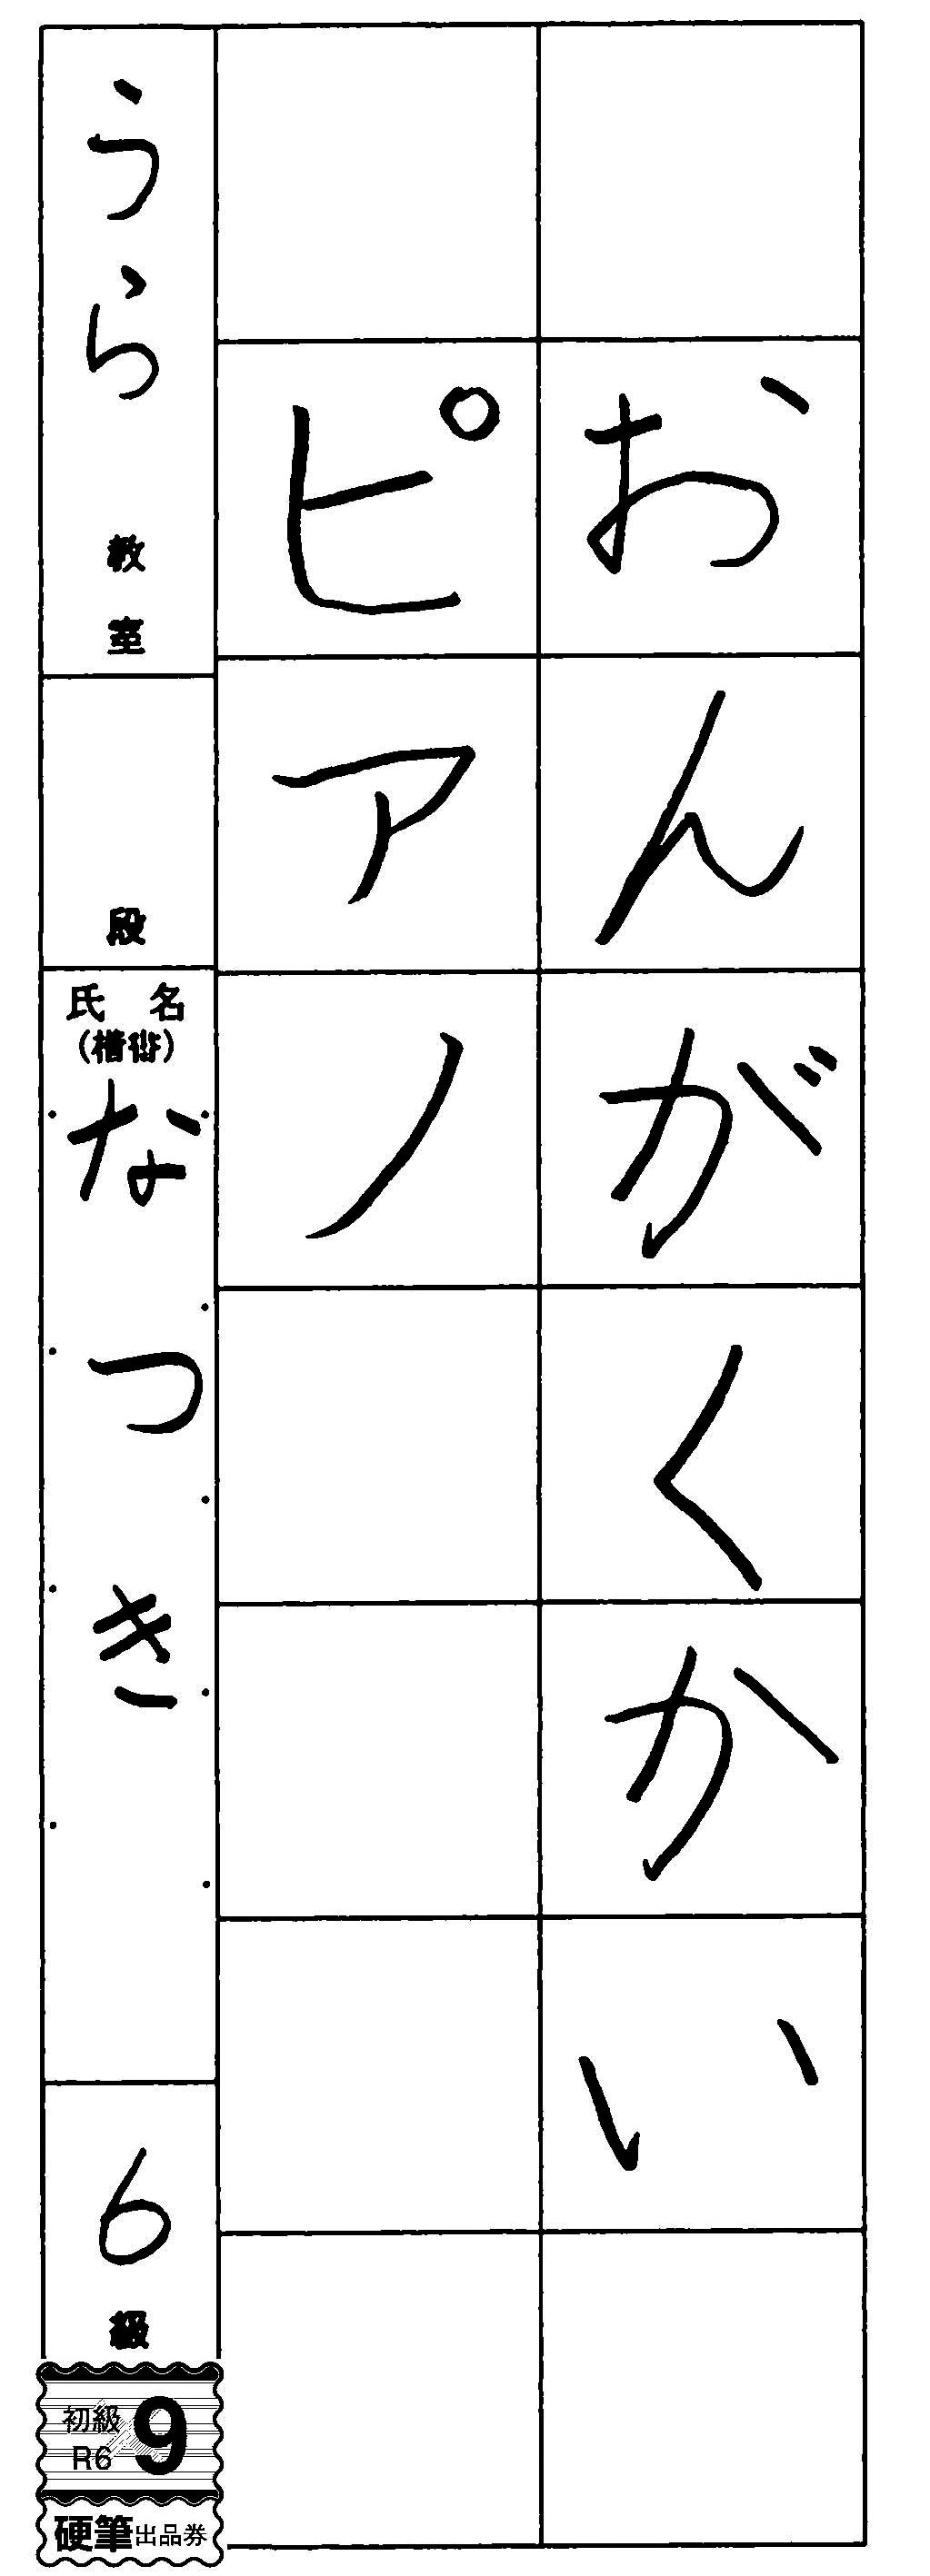 おんがくかい
ピアノ
うら教室
段
氏名
(楷書)
なつき
6級
初級
R6
9
硬筆出品券